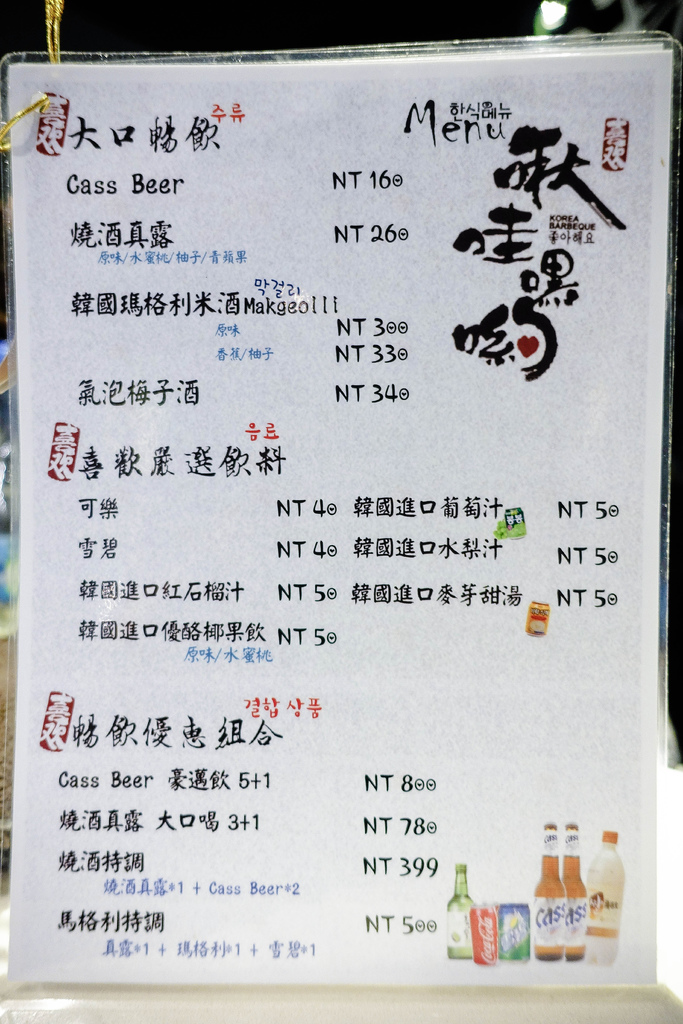 喜歡 大口暢飲 주류
한식메뉴
Menu
喜歡
啾哇嘿喲
KOREA
BARBEQUE
좋아해요
Cass Beer NT 160
燒酒真露 NT 260
原味/水蜜桃/柚子/青蘋果
막걸리
韓國瑪格利米酒Makgeolli
原味 NT 300
香蕉/柚子 NT 330
氣泡梅子酒 NT 340
음료
喜歡 喜歡嚴選飲料
可樂 NT 40 韓國進口葡萄汁 NT 50
雪碧 NT 40 韓國進口水梨汁 NT 50
韓國進口紅石榴汁 NT 50 韓國進口麥芽甜湯 NT 50
韓國進口優酪椰果飲 NT 50
原味/水蜜桃
결합 상품
喜歡 暢飲優惠組合
Cass Beer 豪邁飲 5+1 NT 800
燒酒真露 大口喝 3+1 NT 780
燒酒特調 NT 399
燒酒真露*1 + Cass Beer*2
馬格利特調 NT 500
真露*1 + 瑪格利*1 + 雪碧*1
Cass Cass
Coca-Cola